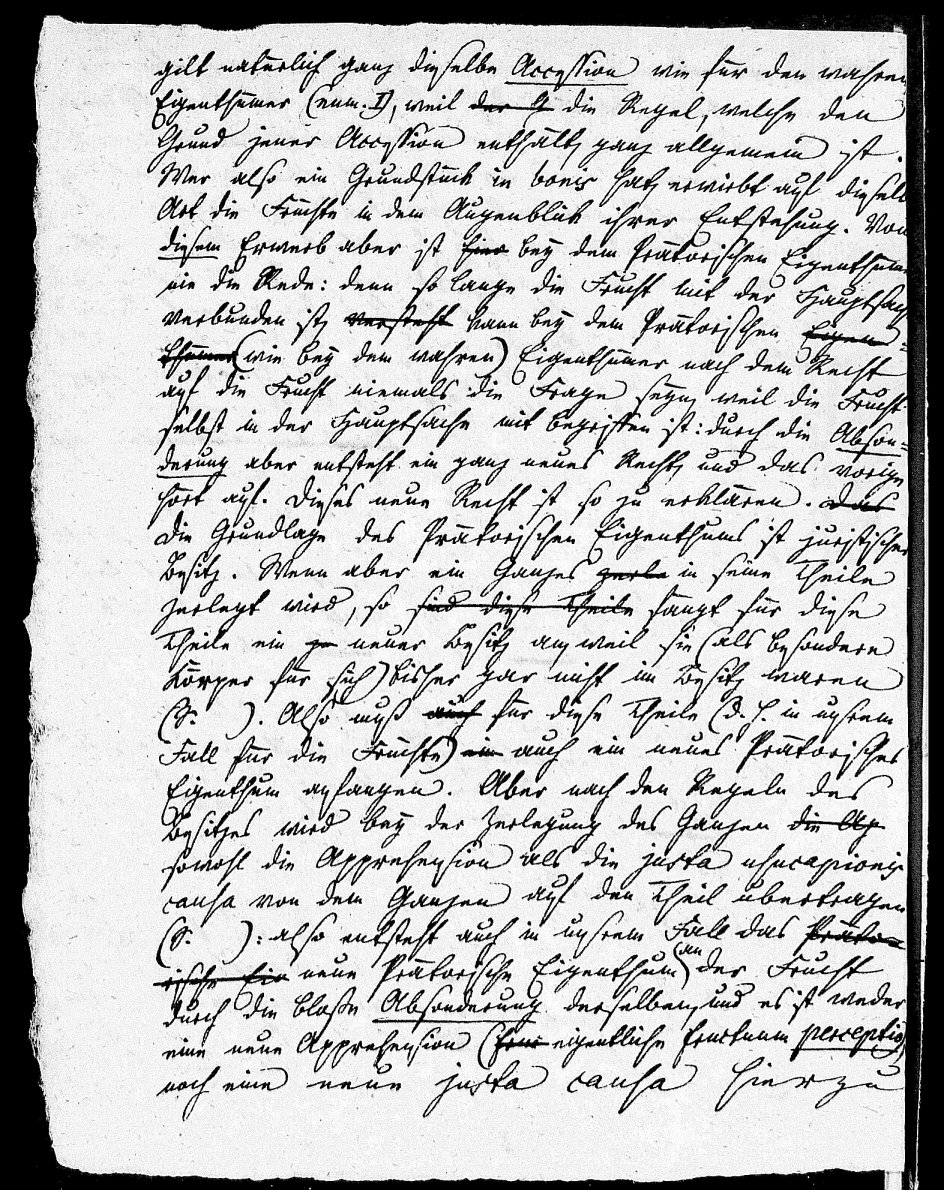 gilt natürlich ganz dieselbe Accession wie für den wahren
Eigenthümer (num. I), weil der G die Regel, welche den
Grund jener Accession enthält, ganz allgemein ist.
Wer also ein Grundstück in bonis hat, erwirbt auf dieselbe
Art die Früchte in dem Augenblick ihrer Entstehung. Von
diesem Erwerb aber ist hier bey dem Prätorischen Eigenthum
nie die Rede: denn so lange die Frucht mit der Hauptsache
verbunden ist, versteht kann bey dem Prätorischen Eigen=
thümer (wie bey dem wahren) Eigenthümer nach dem Recht
auf die Frucht niemals die Frage seyn, weil die Frucht
selbst in der Hauptsache mit begriffen ist: durch die Abson=
derung aber entsteht ein ganz neues Recht, und das vorige
hört auf. Dieses neue Recht ist so zu erklären. Das
Die Grundlage des Prätorischen Eigenthums ist juristischer
Besitz. Wenn aber ein Ganzes zerle in seine Theile
zerlegt wird, so sind diese Theile fängt für diese
Theile ein neuer Besitz an, weil sie (als besondere
Körper für sich) bisher gar nicht im Besitz waren
(S. ). Also muß auch für diese Theile (d. h. in unsrem
Fall für die Früchte) ein auch ein neues Prätorisches
Eigenthum anfangen. Aber nach den Regeln des
Besitzes wird bey der Zerlegung des Ganzen die Ap
sowohl die Apprehension als die justa usucapionis
causa von dem Ganzen auf den Theil übertragen
(S. ): also entsteht auch in unsrem Fall das Präto=
rische Ein neue Prätorische Eigenthum an der Frucht
durch die bloße Absonderung derselben, und es ist weder
eine neue Apprehension (eigentliche fructuum perceptio)
noch eine neue justa causa hierzu